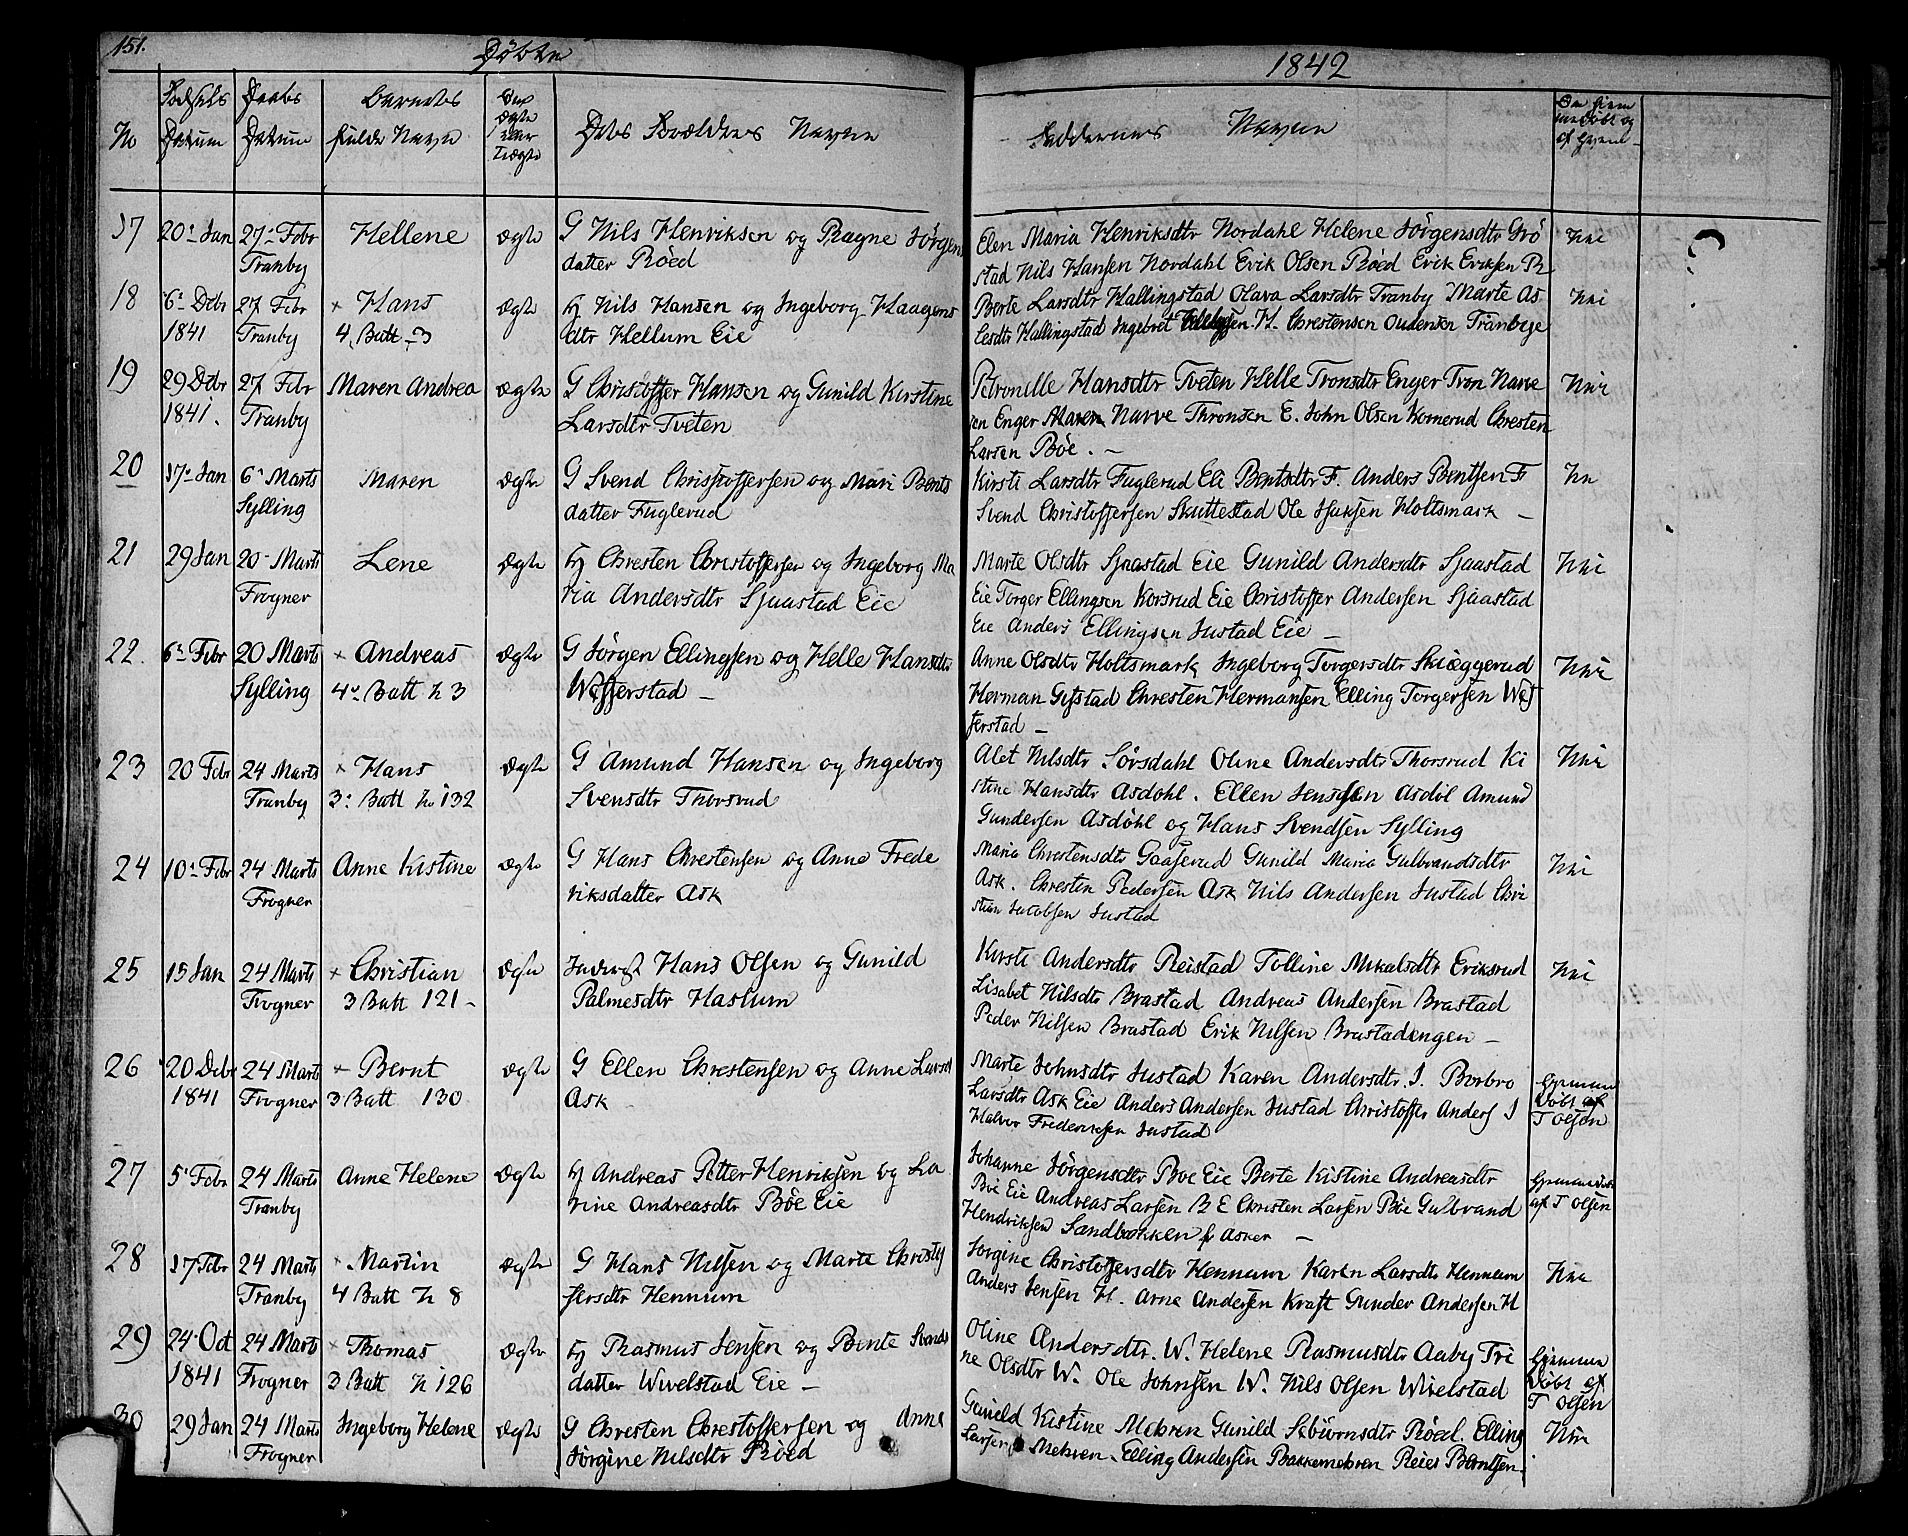 151.
Døbte
1842
No
Fødsels Datum
Daabs Datum
Barnets fulde Navn
Om Ægte eller Uægte
Navne
Faddernes Navne
17 20 Jan 27 Febr Hellene Ægte G Nils Henriksen og Ragne Jørgens Elen Maria Henriksdtr Nordahl Helene Jørgensdtr Grø
Tranby datter Røed stad Nils Hansen Nordahl Erik Olsen Røed Erik Eriksen R
18 6 Dcbr 27 Febr Hans Ægte Hj Nils Hansen og Ingeborg Haagens Berte Larsdtr Hallingstad Olava Larsdtr Tranby Marte As
1841 Tranby 4 Batt 3 dtr Hellum Eie Eesdtr Hallingstad Ingebret H. Chrestensen Oudensen Tranbye
19 29 Dcbr 27 Febr Maren Andrea Ægte G Christoffer Hansen og Gunild Kirstine Petronille Hansdtr Tveten Helle Tronsdtr Enger Tron Narve
1841. Tranby Larsdtr Tveten sen Enger Narve Thronsen E. John Olsen Komerud Chresten
Larsen Bøe.
20 17 Jan 6 Marts Maren Ægte G Svend Christoffersen og Mari Bents Kirsti Larsdtr Fuglerud Eli Bentsdtr F. Anders Bentsen F
Sylling datter Fuglerud Svend Christoffersen Skuttestad Ole Isaksen Holtsmark
21 29 Jan 20 Marts Lene Ægte Hj Chresten Christoffersen og Ingeborg Ma Marte Olsdtr Sjaastad Eie Gunild Andersdtr Sjaastad
Frogner ria Andersdtr Sjaastad Eie Eie Torger Ellingsen Korsrud Eie Christoffer Andersen Sjaastad
Eie Anders Ellingsen Justad Eie
22. 6 Febr 20 Marts Andreas Ægte G Jørgen Ellingsen og Helle Hansdtr Anne Olsdtr Holtsmark Ingeborg Torgersdtr Skiæggerud
Sylling 4 Batt N 3 Wefferstad Herman Gifstad Chresten Hermansen Elling Torgersen Wef
ferstad
23 20 Febr 24 Marts Hans Ægte G Amund Hansen og Ingeborg Alet Nilsdtr Sørsdahl Oline Andersdtr Thorsrud Ki
Tranby 3 Batt No 132 Svensdtr Thorsrud stine Hansdtr Asdøhl. Ellen Asdøl Amund
Gundersen Asdøhl og Hans Svendsen Sylling
24 10 Febr 24 Marts Anne Kistine Ægte G Hans Chrestensen og Anne Frede Maria Chrestensdtr Gaaserud Gunild Maria Gulbrandsdtr
Frogner riksdatter Ask Ask. Chresten Pedersen Ask Nils Andersen Justad Chri
stian Jacobsen Justad
25 15 Jan 24 Marts Christian Ægte Inderst Hans Olsen og Gunild Kirsti Andersdtr Reistad Tolline Mikalsdtr Eriksrud
Frogner 3 Batt 121 Palmesdtr Haslum Lisabet Nilsdtr Brastad Andreas Andersen Brastad
Peder Nilsen Brastad Erik Nilsen Brastadengen
26 20 Dcbr 24 Marts Bernt Ægte G Ellen Chrestensen og Anne Larsdt Marte Johnsdtr Justad Karen Andersdtr J. Borbro Hjemme
1841 Frogner 3 Batt 130 Ask Larsdtr Ask Eie Anders Andersen Justad Christoffer Anders J Døbt af
Halvor Frederiksen Justad T Olsen
27 5 Febr 24 Marts Anne Helene Ægte Hj Andreas Petter Henriksen og La Johanne Jørgensdtr Bøe Eie Berte Kistine Andreasdtr
Tranby rine Andreasdtr Bøe Eie Bøe Eie Andreas Larsen B E Christen Larsen Bøe Gulbrand af T Olsen
Hendriksen Sandbakken f Asker
28 17 Febr 24 Marts Martin Ægte G Hans Nilsen og Marte Christof Jørgine Christoffersdtr Hennum Karen Larsdtr Hennum
Tranby 4 Batt N 8 fersdtr Hennum Anders Jensen H. Arne Andersen Kraft Gunder Andersen H
29 24 Oct 24 Marts Thomas Ægte Hj Rasmus Jensen og Bente Svends Oline Andersdtr. W. Helene Rasmusdtr Aaby Tri Hjemme
1841 Frogner 3 Batt N 126 datter Wivelstad Eie ne Olsdtr W. Ole Johnsen W. Nils Olsen Wivelstad Døbt af
T Olsen
30 29 Jan 24 Marts Ingeborg Helene Ægte G Chresten Chrestoffersen og Anne Gunild Kistine Mehren Gunild Røed. Elling
Frogner Jørgine Nilsdtr Røed Larsen Mehren. Elling Andersen Bakkemehren Reier Berntsen